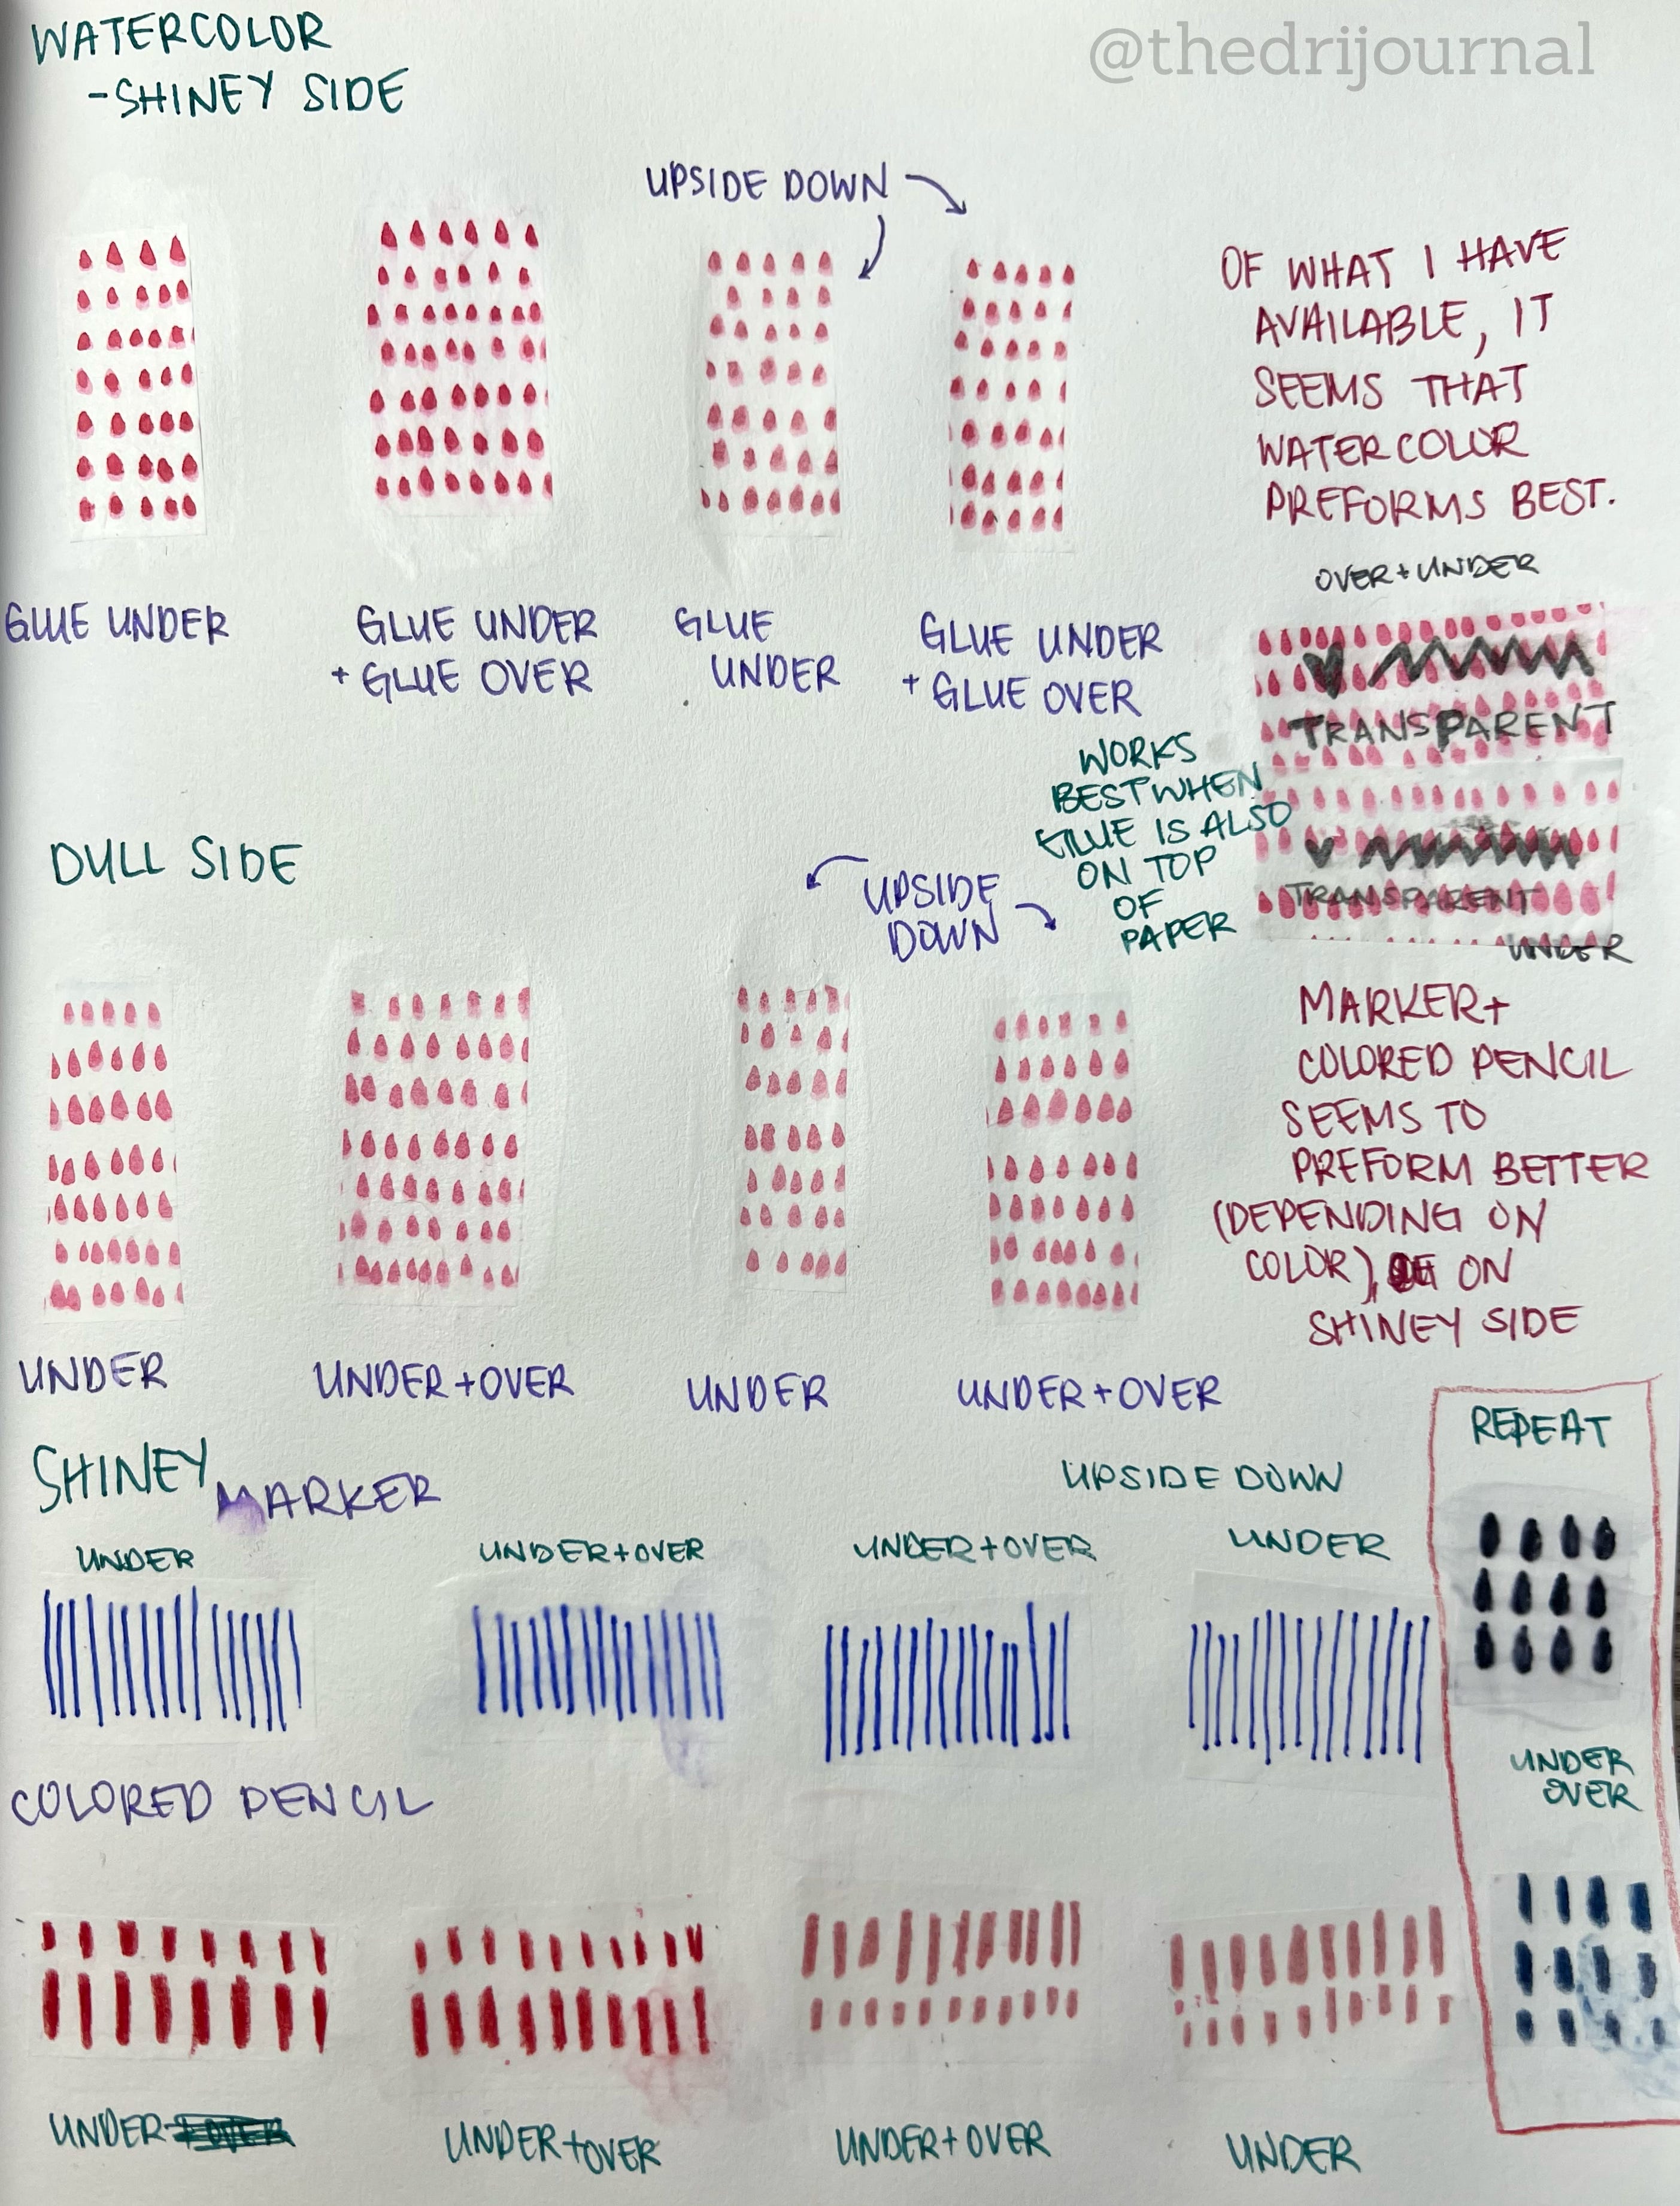 @thedrijournal
WATERCOLOR
-SHINEY SIDE
UPSIDE DOWN
GLUE UNDER
GLUE UNDER
+ GLUE OVER
GLUE
UNDER
GLUE UNDER
+ GLUE OVER
OF WHAT I HAVE
AVAILABLE, IT
SEEMS THAT
WATERCOLOR
PREFORMS BEST.
OVER+UNDER
TRANSPARENT
TRANSPARENT
UNDER
WORKS
BEST WHEN
GLUE IS ALSO
ON TOP
OF
PAPER
DULL SIDE
UPSIDE
DOWN
UNDER
UNDER+OVER
UNDER
UNDER+OVER
MARKER+
COLORED PENCIL
SEEMS TO
PREFORM BETTER
(DEPENDING ON
COLOR), ON
SHINEY SIDE
SHINEY MARKER
UPSIDE DOWN
UNDER
UNDER+OVER
UNDER+OVER
UNDER
COLORED PENCIL
UNDER
UNDER+OVER
UNDER+OVER
UNDER
REPEAT
UNDER
OVER